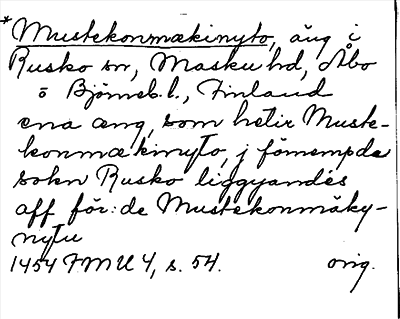 *Mustekonmækinyto, äng i
Rusko sn, Masku hd, Åbo
o Björneb. l., Finland
ena æng, som hetir Muste-
konmækinyto, j fömempde
sokn Rusko liggyandes
aff för:de Mustekonmäky-
nytu
1454 FMU 4, s. 54. orig.